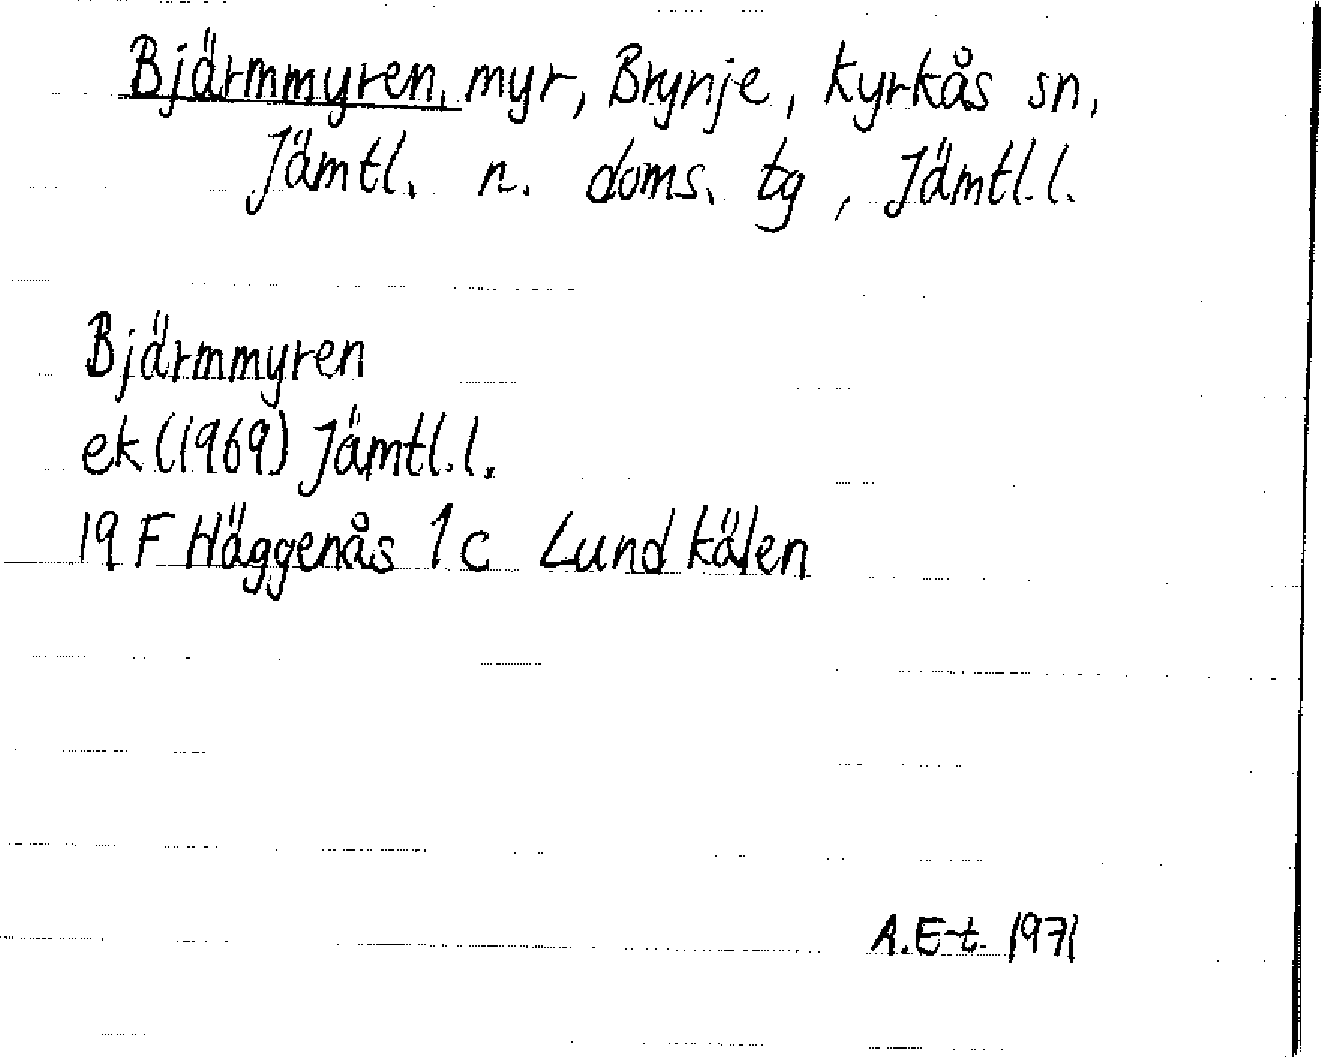 Bjärmmyren, myr, Brynje, Kyrkås sn,
Jämtl. n. doms. tg, Jämtl.l.
Bjärmmyren
ek (1969) Jämtl.l.
19 F Häggenås 1c Lundkälen
A.E-t. 1971